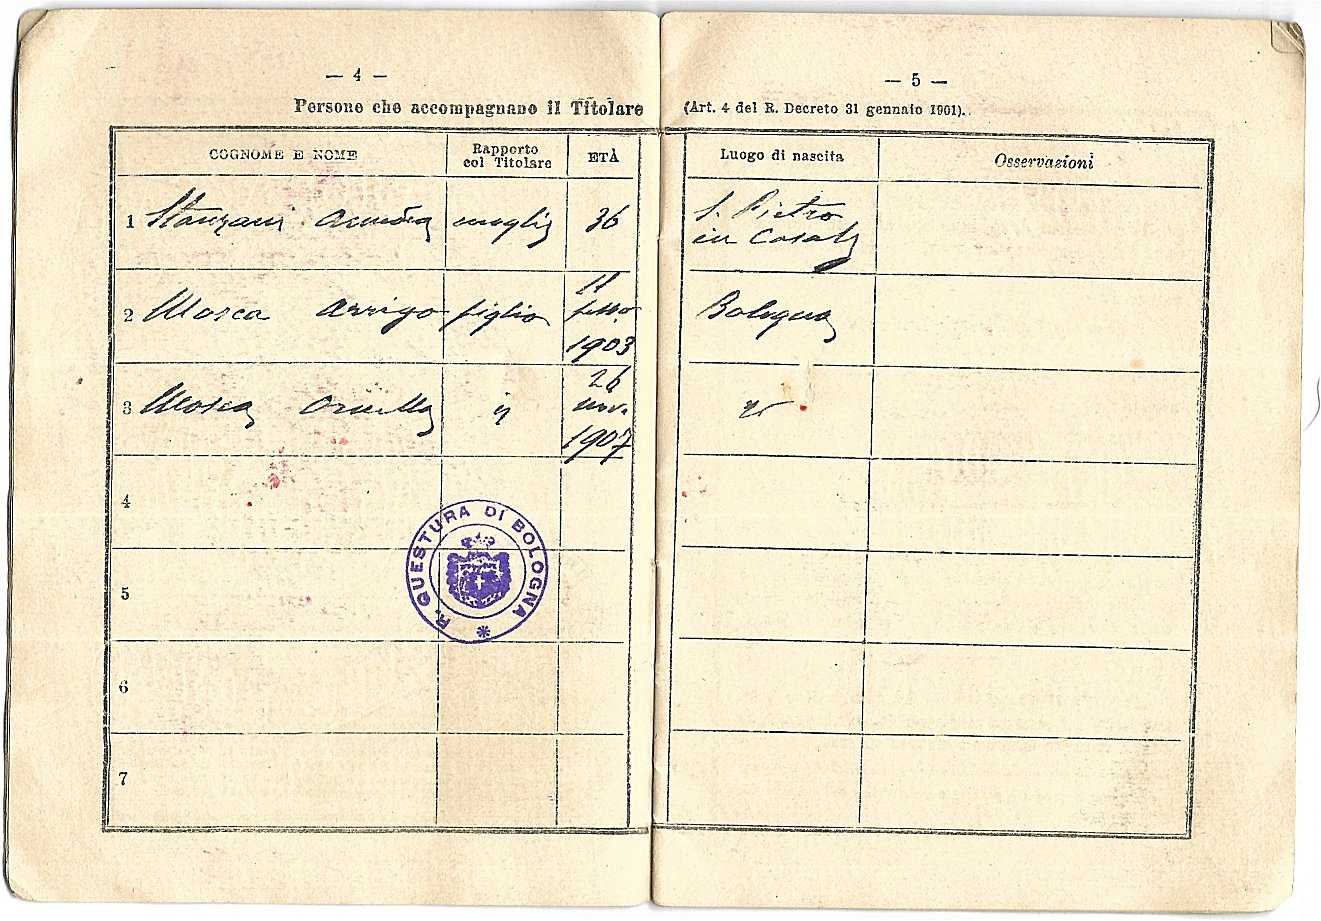 — 4 —
Persone che accompagnano il Titolare
COGNOME E NOME
Rapporto
col Titolare
ETÀ
1 Stanzani moglie 36
2 Mosca Arrigo figlio 11
febbr
1903
3 Mosca Ornella " 26
nov.
1907
4
5
6
7
R. QUESTURA DI BOLOGNA
— 5 —
(Art. 4 del R. Decreto 31 gennaio 1901).
Luogo di nascita
Osservazioni
S. Pietro
in Casale
Bologna